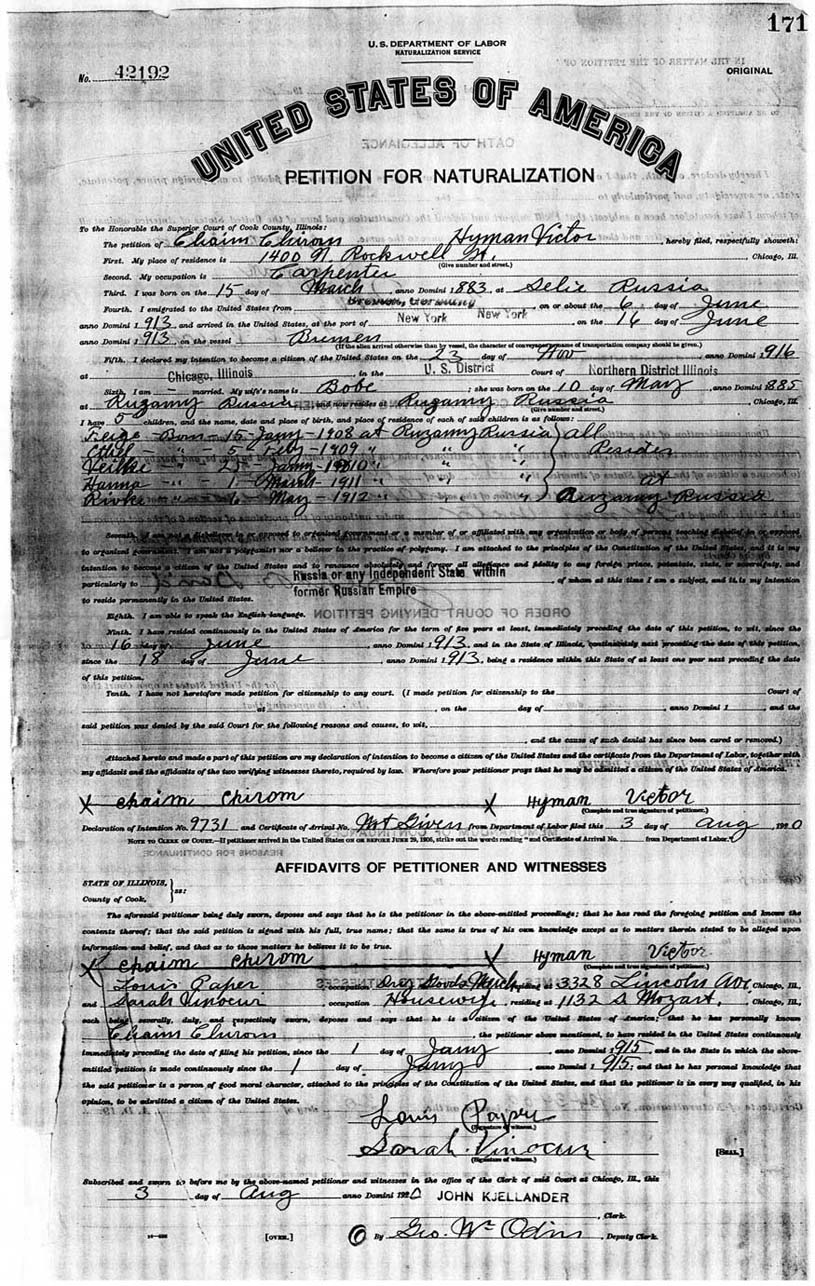 171
U.S. DEPARTMENT OF LABOR
NATURALIZATION SERVICE
No. 42192
ORIGINAL
UNITED STATES OF AMERICA
PETITION FOR NATURALIZATION
To the Honorable the Superior Court of Cook County, Illinois:
The petition of Chaim Chirom Hyman Victor, hereby filed, respectfully showeth:
First. My place of residence is 1400 N. Rockwell St. Chicago, Ill.
(Give number and street.)
Second. My occupation is Carpenter
Third. I was born on the 15 day of March anno Domini 1883, at Selie Russia
Fourth. I emigrated to the United States from Bremen, Germany on or about the 6 day of June
anno Domini 1913, and arrived in the United States, at the port of New York New York on the 16 day of June
anno Domini 1913 on the vessel Bremen
(If the alien arrived otherwise than by vessel, the character of conveyance or name of transportation company should be given.)
Fifth. I declared my intention to become a citizen of the United States on the 23 day of Nov, anno Domini 1916
at Chicago, Illinois in the U. S. District Court of Northern District Illinois
Sixth. I am - married. My wife's name is Bobe; she was born on the 10 day of May, anno Domini 1885
at Ruzamy Russia and now resides at Ruzamy Russia, Chicago, Ill.
(Give number and street.)
I have 5 children, and the name, date and place of birth, and place of residence of each of said children is as follows:
Feige - Born - 15 - Jany - 1908 at Ruzamy Russia } all
- " - 5 - Feby - 1909 " " " Resides
- " - 25 - Jany - 1910 " " "
Hanna - " - 1 - March - 1911 " " " at
Rivke - " - 6 - May - 1912 " " " Ruzamy Russia
Seventh. I am not a disbeliever in or opposed to organized government or a member of or affiliated with any organization or body of persons teaching disbelief in or opposed
to organized government. I am not a polygamist nor a believer in the practice of polygamy. I am attached to the principles of the Constitution of the United States, and it is my
intention to become a citizen of the United States and to renounce absolutely and forever all allegiance and fidelity to any foreign prince, potentate, state, or sovereignty, and
particularly to Russia or any Independent State within of whom at this time I am a subject, and it is my intention
former Russian Empire
to reside permanently in the United States.
Eighth. I am able to speak the English language.
Ninth. I have resided continuously in the United States of America for the term of five years at least, immediately preceding the date of this petition, to wit, since the
16 day of June, anno Domini 1913, and in the State of Illinois, continuously next preceding the date of this petition,
since the 18 day of June, anno Domini 1913, being a residence within this State of at least one year next preceding the date
of this petition.
Tenth. I have not heretofore made petition for citizenship to any court. (I made petition for citizenship to the Court of
at, on the day of, anno Domini 1 and the
said petition was denied by the said Court for the following reasons and causes, to wit,
and the cause of such denial has since been cured or removed.)
Attached hereto and made a part of this petition are my declaration of intention to become a citizen of the United States and the certificate from the Department of Labor, together with
my affidavit and the affidavits of the two verifying witnesses thereto, required by law. Wherefore your petitioner prays that he may be admitted a citizen of the United States of America.
X Chaim Chirom X Hyman Victor
(Complete and true signature of petitioner.)
Declaration of Intention No. 9731 and Certificate of Arrival No. Not Given from Department of Labor filed this 3 day of Aug 1920
NOTE TO CLERK OF COURT.—If petitioner arrived in the United States ON OR BEFORE JUNE 29, 1906, strike out the words reading "and Certificate of Arrival No. from Department of Labor."
AFFIDAVITS OF PETITIONER AND WITNESSES
STATE OF ILLINOIS, } ss:
County of Cook,
The aforesaid petitioner being duly sworn, deposes and says that he is the petitioner in the above-entitled proceedings; that he has read the foregoing petition and knows the
contents thereof; that the said petition is signed with his full, true name; that the same is true of his own knowledge except as to matters therein stated to be alleged upon
information and belief, and that as to those matters he believes it to be true.
X Chaim Chirom X Hyman Victor
(Complete and true signature of petitioner.)
Louis Paper, occupation Dry Goods Merch, residing at 3328 Lincoln Ave, Chicago, Ill.,
and Sarah Vinocur, occupation Housewife, residing at 1132 S Mozart, Chicago, Ill.,
each being severally, duly, and respectively sworn, deposes and says that he is a citizen of the United States of America; that he has personally known
Chaim Chirom, the petitioner above mentioned, to have resided in the United States continuously
immediately preceding the date of filing his petition, since the 1 day of Jany, anno Domini 1915, and in the State in which the above-
entitled petition is made continuously since the 1 day of Jany anno Domini 1915; and that he has personal knowledge that
the said petitioner is a person of good moral character, attached to the principles of the Constitution of the United States, and that the petitioner is in every way qualified, in his
opinion, to be admitted a citizen of the United States.
Louis Paper
(Signature of witness.)
Sarah Vinocur
(Signature of witness.)
[SEAL.]
Subscribed and sworn to before me by the above-named petitioner and witnesses in the office of the Clerk of said Court at Chicago, Ill., this
3 day of Aug anno Domini 1920 JOHN KJELLANDER
, Clerk.
[OVER.] By Geo. Wm Odins, Deputy Clerk.